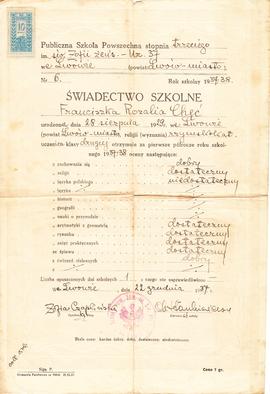 10
Publiczna Szkoła Powszechna stopnia trzeciego
im. św. Zofii żeńs. - Nr. 37
we Lwowie (powiat Lwów-miasto)
Nr 6. Rok szkolny 1937/38.
ŚWIADECTWO SZKOLNE
Franciszka Rozalia Chęć
urodzona dnia 28 sierpnia 1929 we Lwowie
(powiat Lwów-miasto, religii (wyznania) rzymskokat.
uczenica klasy drugiej otrzymuje za pierwsze półrocze roku szkol-
nego 1937-38 oceny następujące:
z zachowania się dobry
z religii dostateczny
z języka polskiego niedostateczny
z języka
z historii
z geografii
z nauki o przyrodzie
z arytmetyki z geometrią dostateczny
z rysunku dostateczny
z zajęć praktycznych dostateczny
ze śpiewu dostateczny
z ćwiczeń cielesnych dobry
Liczba opuszczonych dni szkolnych 1 z tego nie usprawiedliwiono
we Lwowie, dnia 22 grudnia 1937.
Zofia
Skala ocen: bardzo dobry, dobry, dostateczny, niedostateczny.
Cena 1 gr.